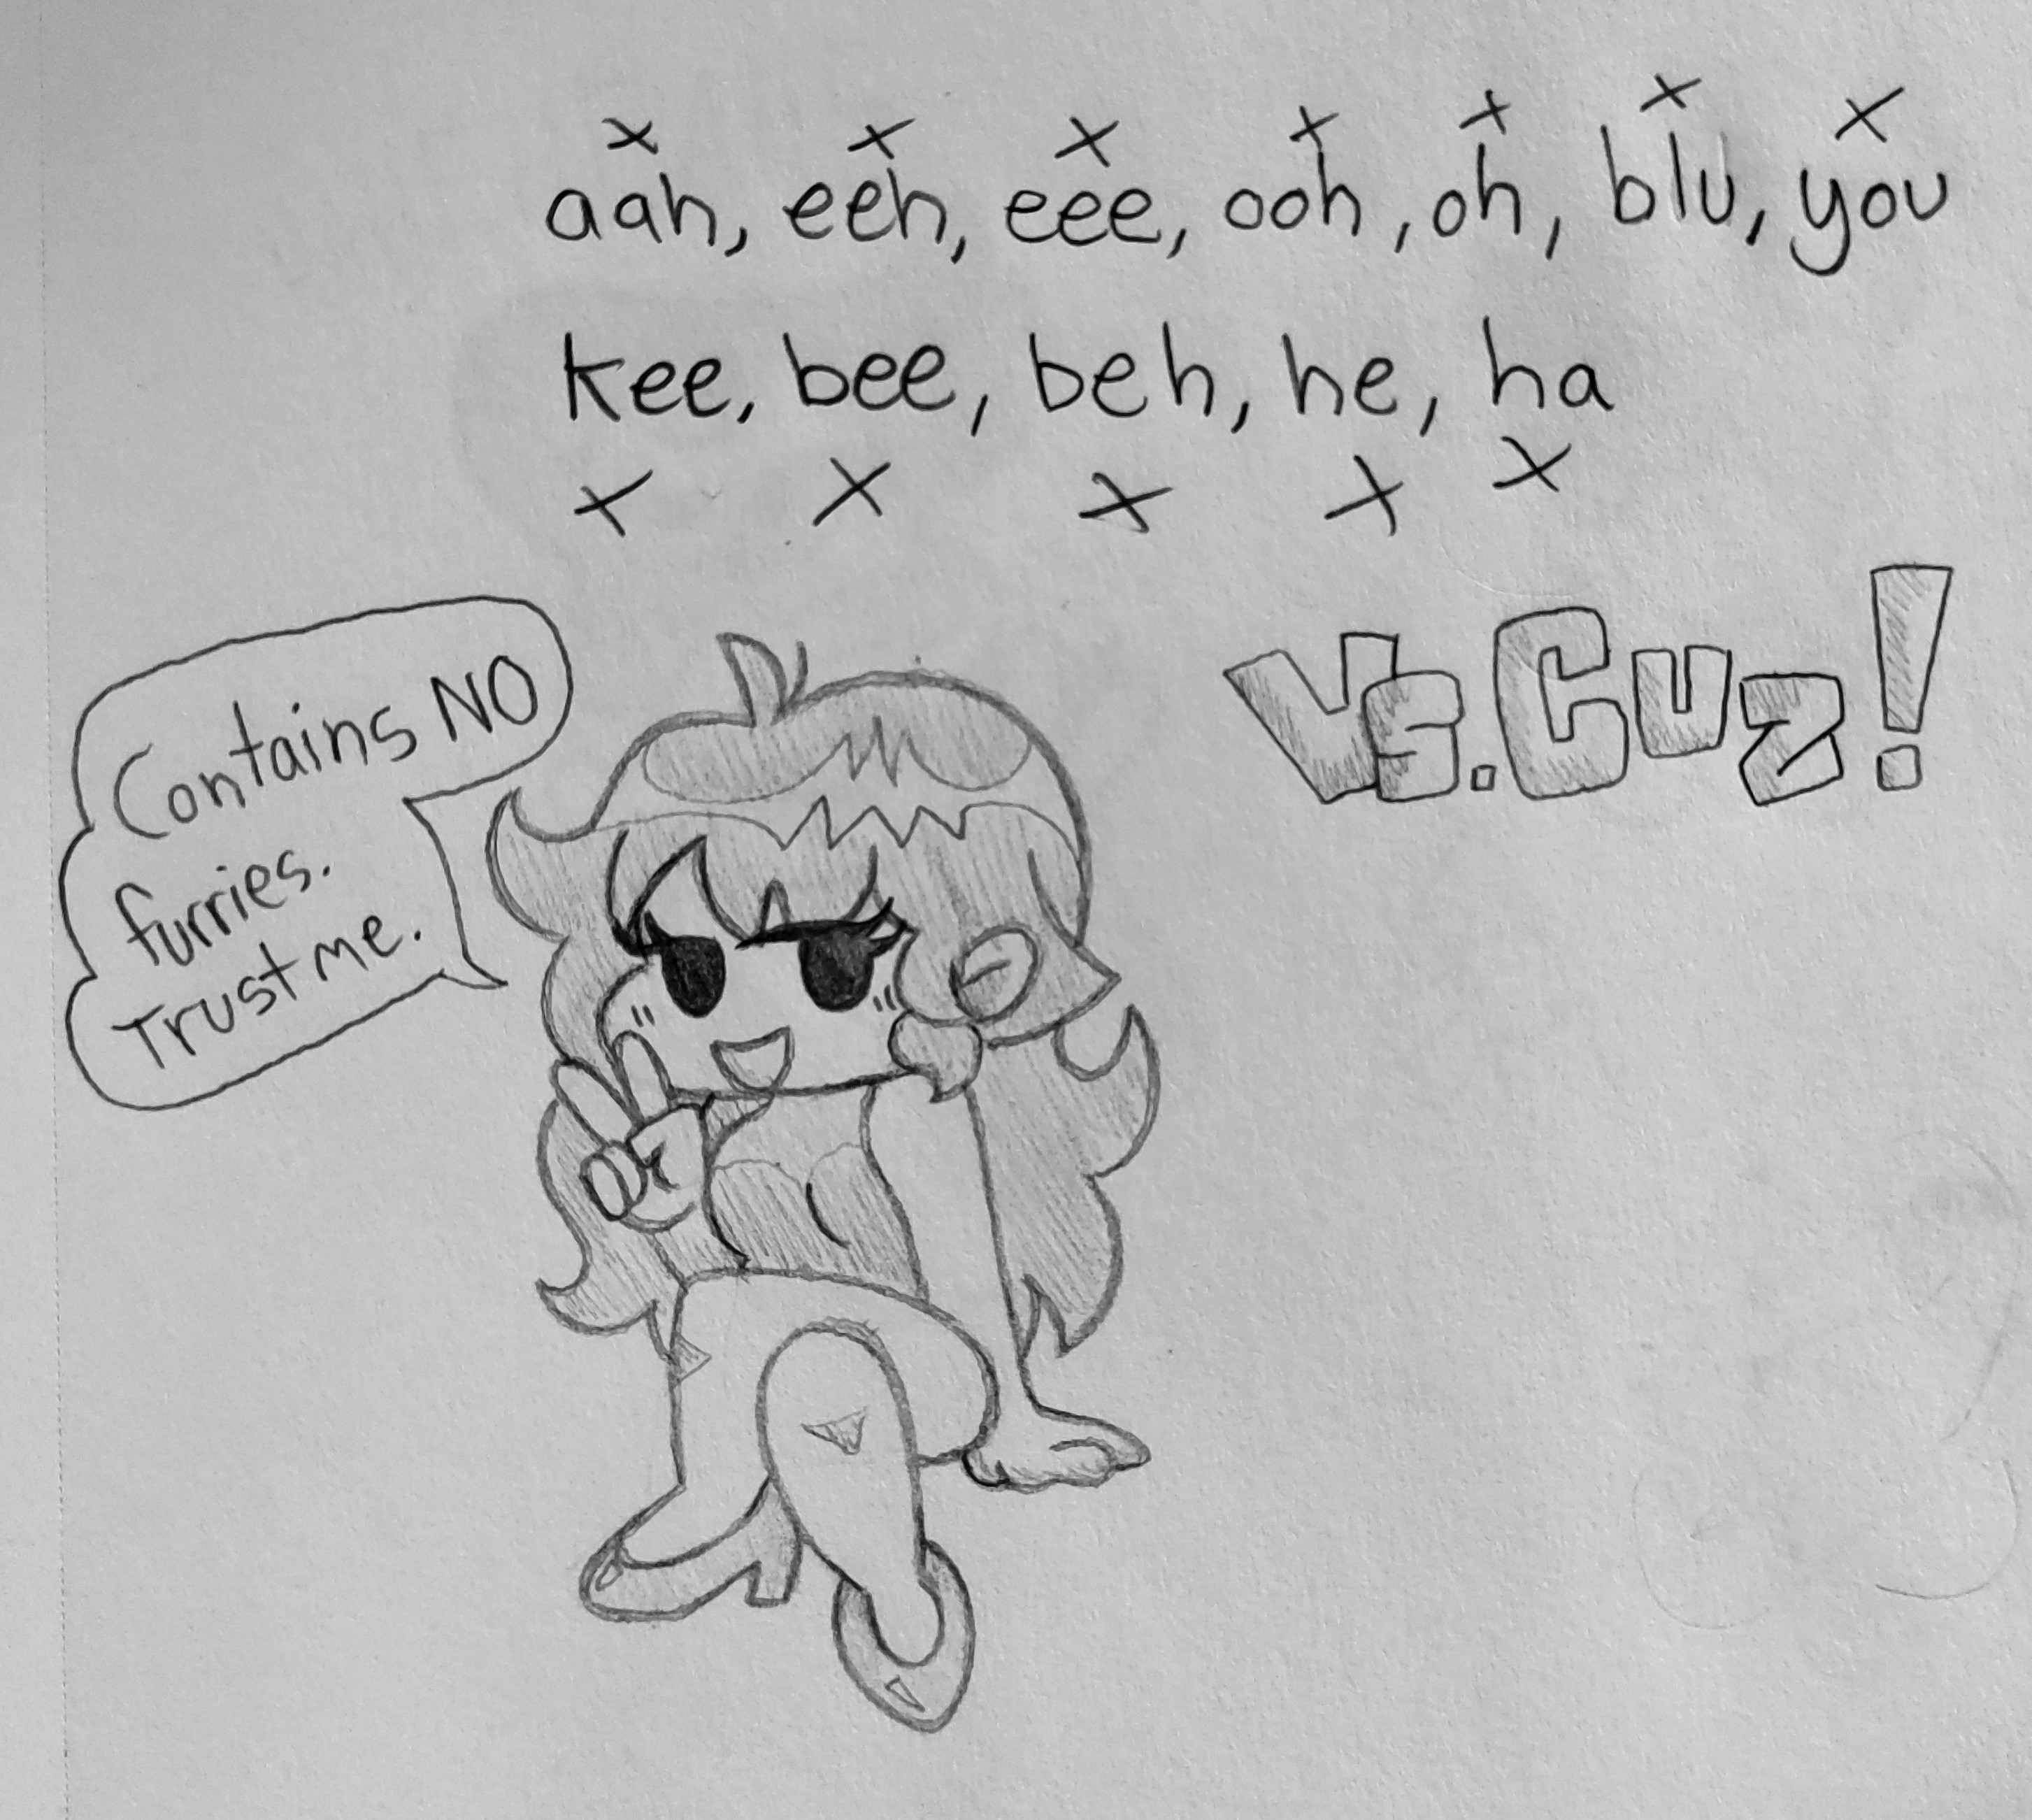 aah, eeh, eee, ooh, oh, blu, you
kee, bee, beh, he, ha
Contains NO
furries.
Trust me.
Vs. Cuz!